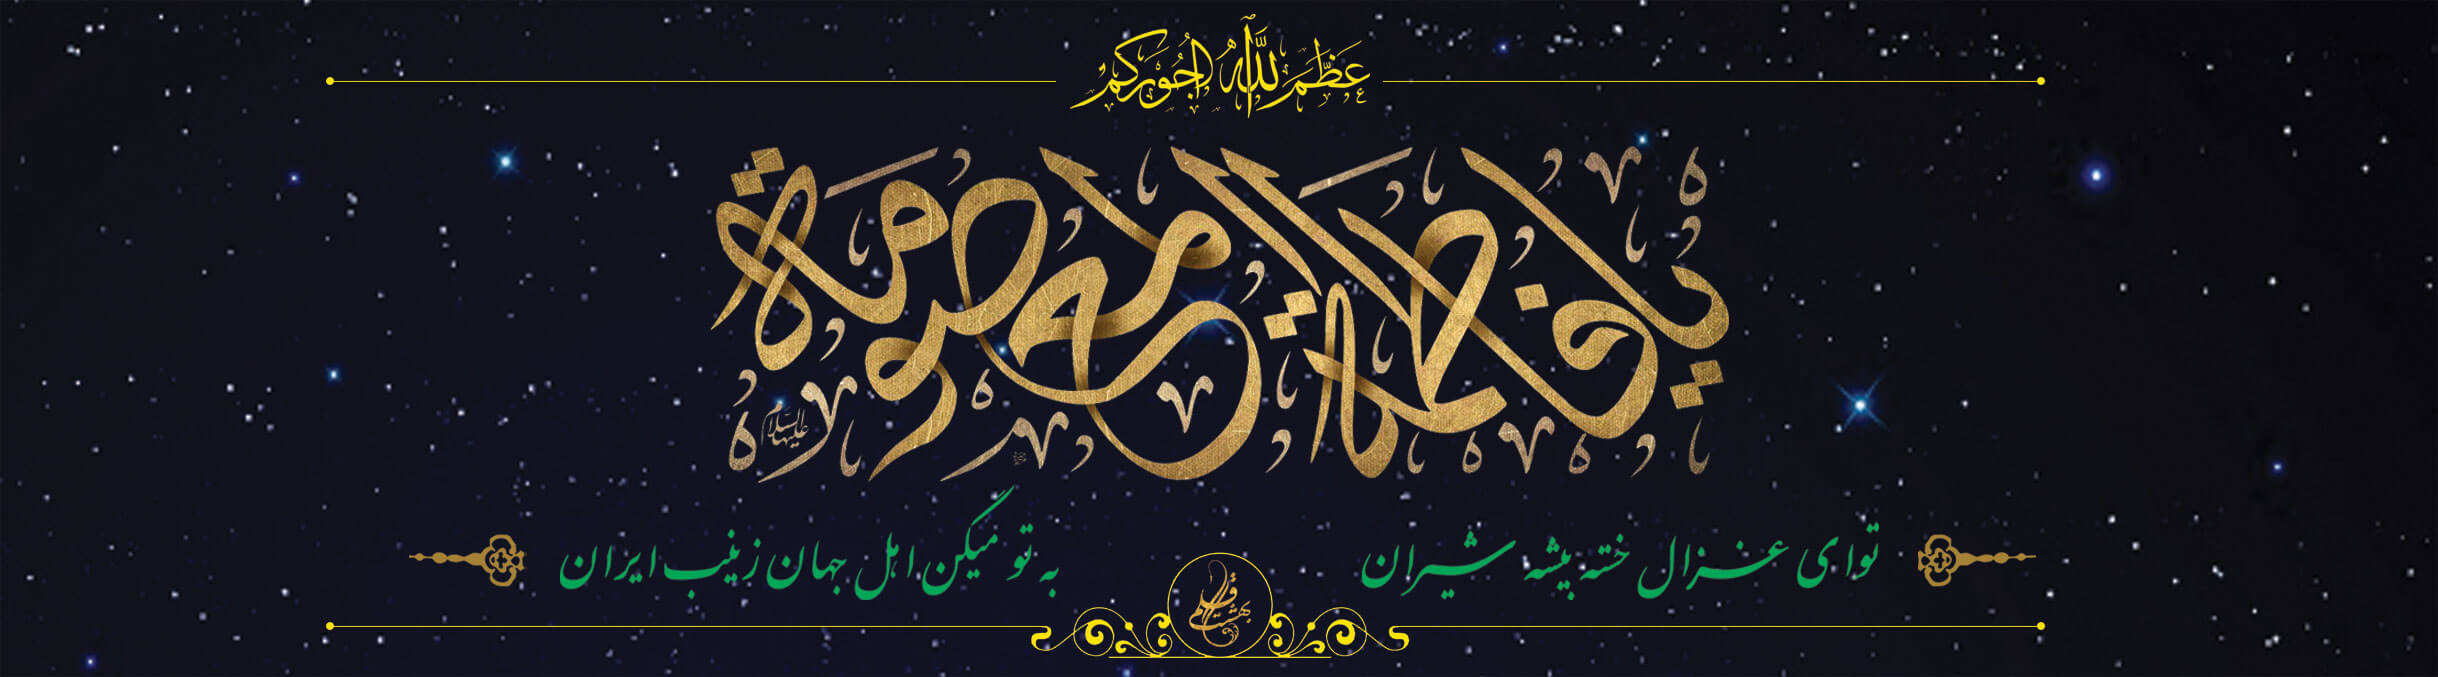 عَظَّمَ اللهُ اُجُورَكُم
یا فاطمة المعصومة
علیها السلام
تو ای غزال خسته بیشه شیران به تو میگن اهل جهان زینب ایران